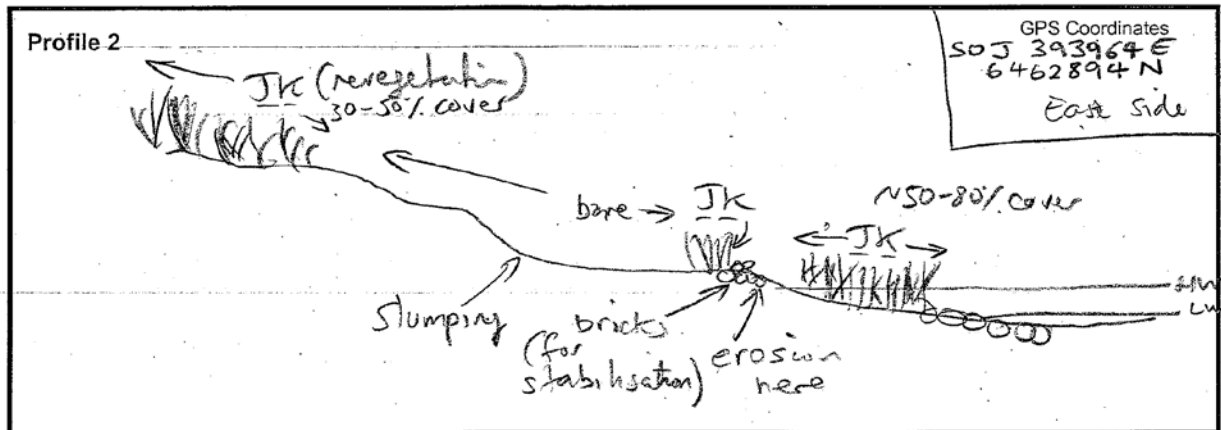 Profile 2
GPS Coordinates
50J 393964 E
6462894 N
East Side
JK (revegetation)
30-50% cover
bare
JK
~50-80% cover
JK
HW
LW
slumping
bricks
(for
stabilisation)
erosion
here